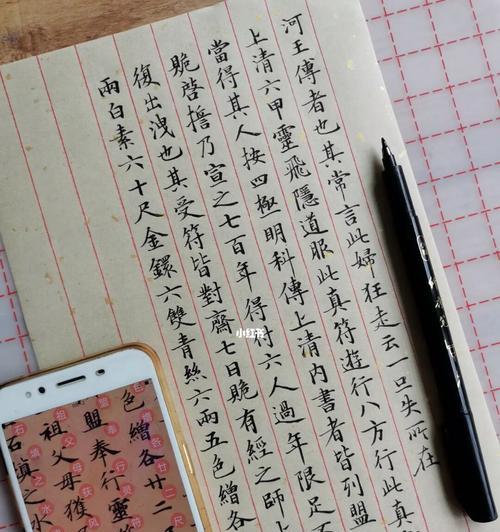 河王傳者也其常言此婦狂走云一旦失所在
上清六甲靈飛隱道服此真符遊行八方行此真
當得其人按四極明科傳上清內書者皆列盟
跪啓擔乃宣之七百年得付六人過年限足
復出洩也其受符皆對齋七日跪有經之師上
兩白素六十尺金鐶六雙青絲六兩五色繒各
小红书
色繒各廿二尺
盟奉行靈
祖父母獲